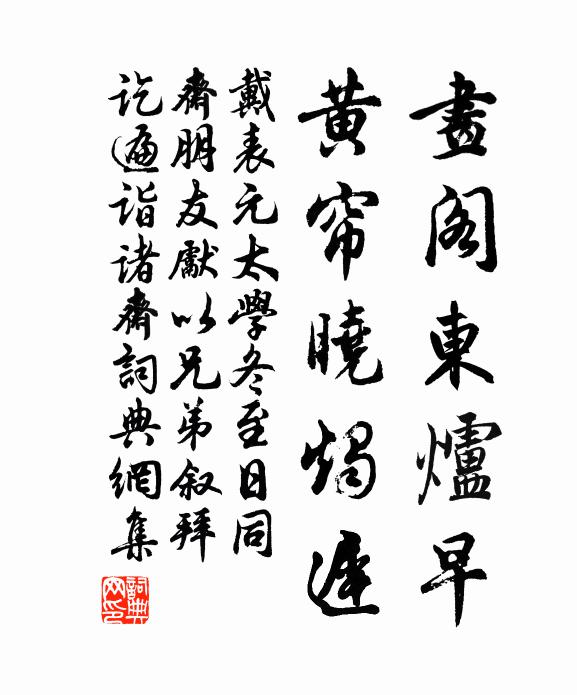 畫閣東爐早
黃帘曉燭遲
戴表元太學冬至日同
齋朋友獻以兄弟叙拜
訖遍詣諸齋詞典網集
詞典網印